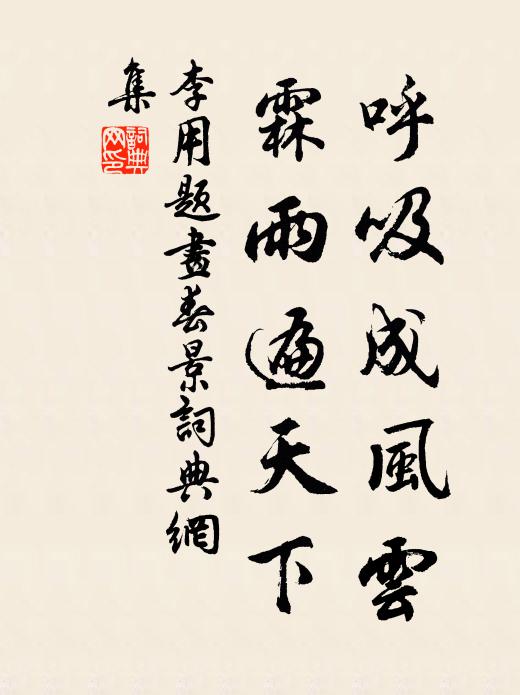 呼吸成風雲
霖雨遍天下
李用題畫春景詞典網
集
詞典網印